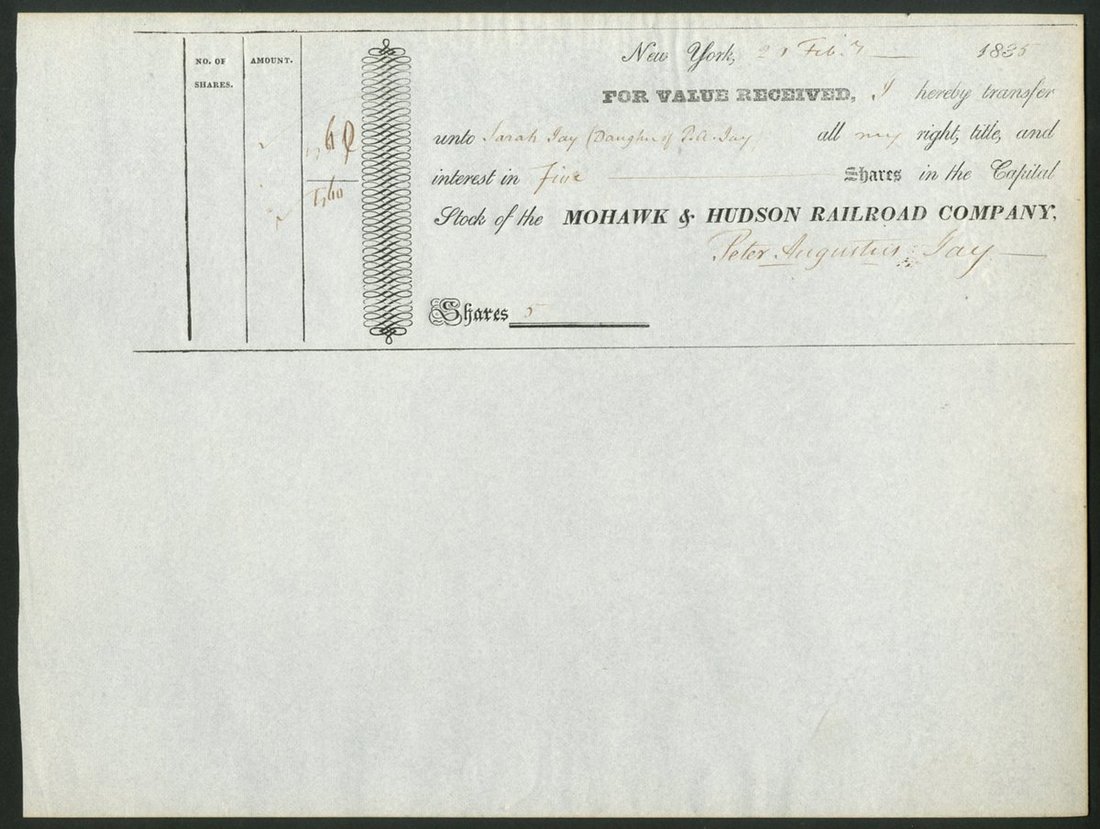 NO. OF
SHARES.
AMOUNT.
New York, 21 Feb.y 1835
FOR VALUE RECEIVED, I hereby transfer
unto Sarah Jay (Daughr of P. A. Jay all my right, title, and
interest in Five Shares in the Capital
Stock of the MOHAWK & HUDSON RAILROAD COMPANY,
Peter Augustus Jay
Shares 5